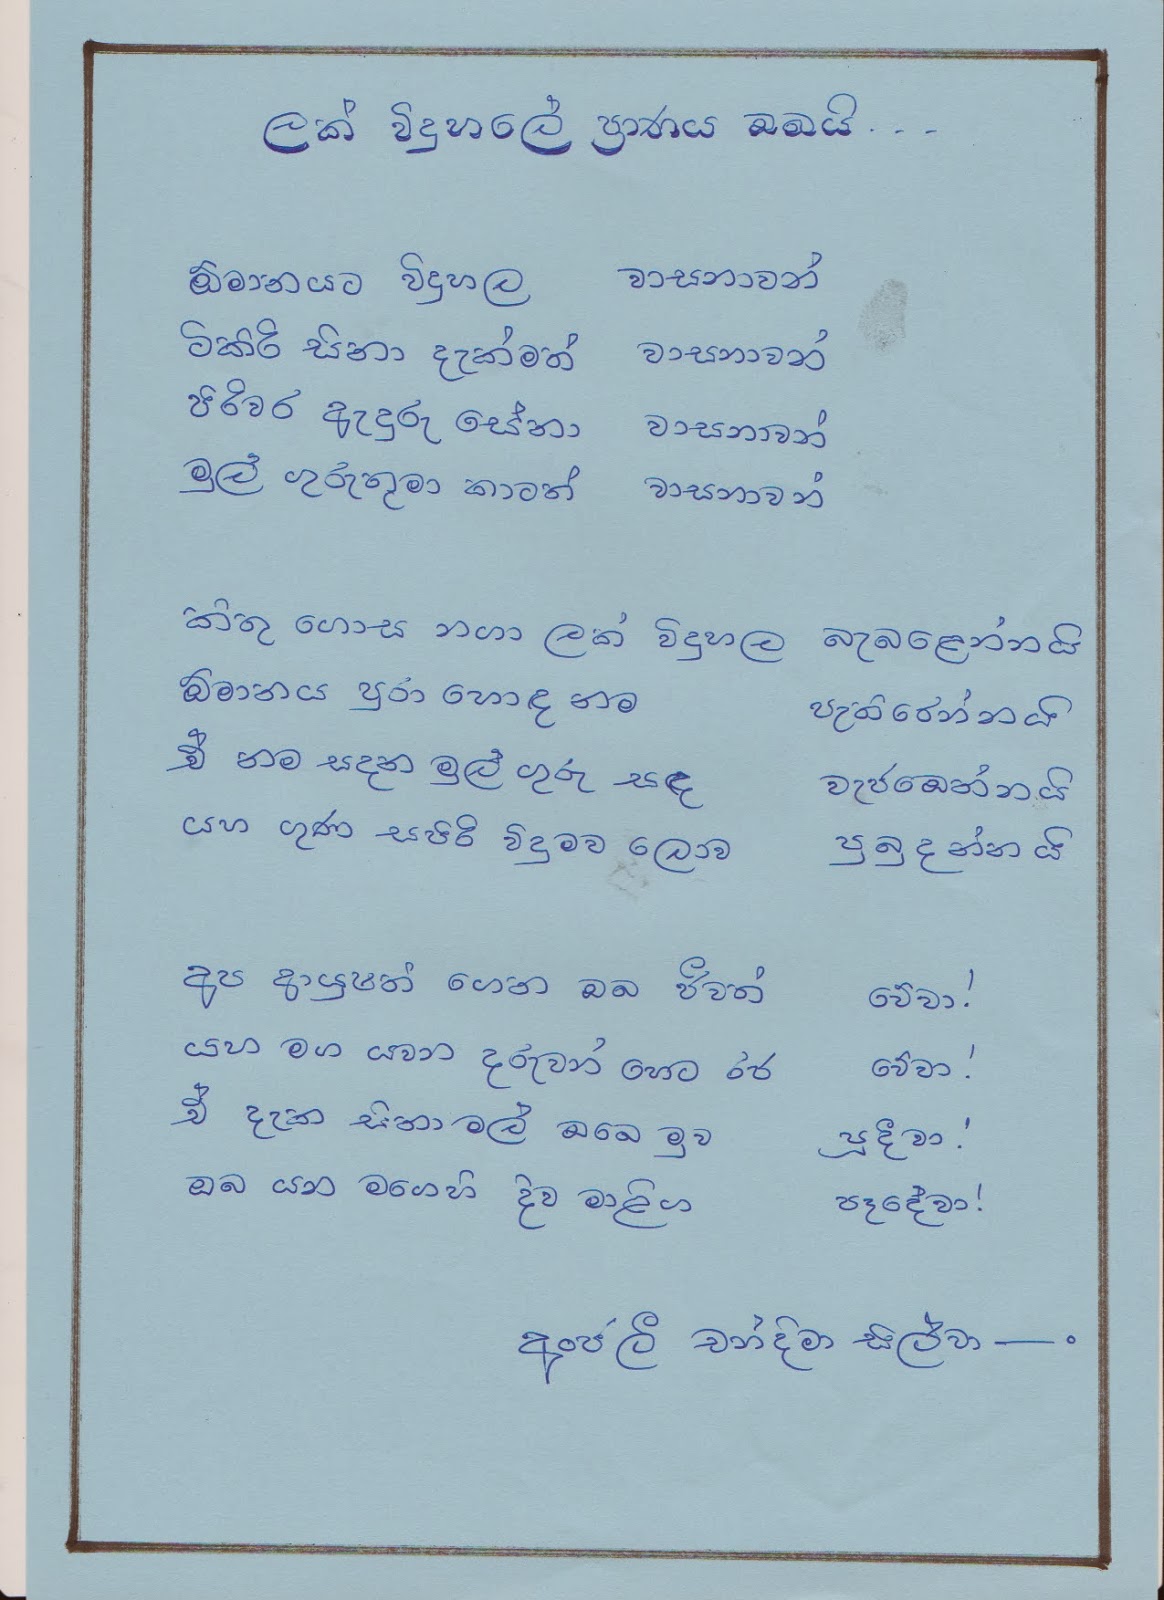 ලක් විදුහලේ ප්‍රාණය ඔබයි...
ඕමානයට විදුහල වාසනාවන්
ටිකිරි සිනා දැක්මත් වාසනාවන්
පිරිවර ඇදුරු සේනා වාසනාවන්
මුල් ගුරුතුමා කාටත් වාසනාවන්
කිතු ගොස නගා ලක් විදුහල බැබළෙන්නයි
ඕමානය පුරා හොඳ නම පැතිරෙන්නයි
ඒ නම සදන මුල් ගුරු සඳ වැජඹෙන්නයි
යහ ගුණ සපිරි විදුමව ලොව පුබුදන්නයි
අප ආයුෂත් ගෙන ඔබ ජීවත් වේවා!
යහ මග යවන දරුවන් හෙට රජ වේවා!
ඒ දැක සිනා මල් ඔබෙ මුව පූදීවා!
ඔබ යන මගෙහි දිව මාළිග පෑදේවා!
අංජලී චන්දිමා සිල්වා —.